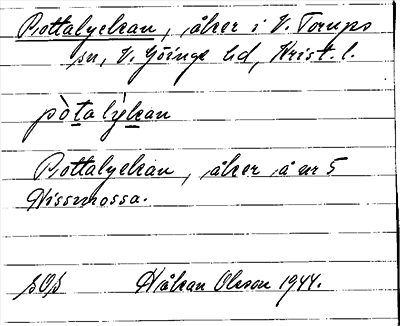 Pottalyckan, åker i V. Torups
sn, V. Göinge hd, Krist. l.
pòtalýkan
Pottalyckan, åker å nr 5
Nissmossa.
sOs Håkan Olsson 1944.